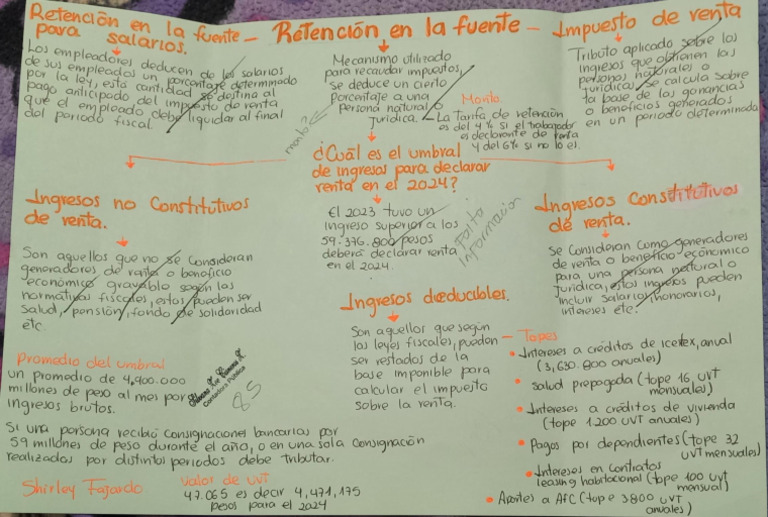 Retención en la fuente – Retención en la fuente – Impuesto de venta
para salarios.
Los empleadores deducen de los salarios
de sus empleados un porcentaje determinado
por la ley, esta cantidad se destina al
pago anticipado del impuesto de venta
que el empleado debe liquidar al final
del periodo fiscal.
Mecanismo utilizado
para recaudar impuestos,
se deduce un cierto
Porcentaje a una
persona natural o
Jurídica.
monto?
Monto.
La Tarifa de retención
es del 4% si el trabajador
es declarante de renta
y del 6% si no lo el.
Tributo aplicado sobre los
ingresos que obtienen las
personas naturales o
Jurídica, se calcula sobre
la base de las ganancias
o beneficios generados
en un periodo determinado
¿Cuál es el umbral
de ingresos para declarar
renta en el 2024?
El 2023 tuvo un
ingreso superior a los
59.376.800 pesos
deberá declarar renta
en el 2024.
Falta
Informacion
Ingresos no Constitutivos
de renta.
Son aquellos que no se consideran
generadores de renta o beneficio
económico gravable según las
normativas fiscales, estos pueden ser
Salud, pensión, fondo de solidaridad
etc.
Ingresos Constitutivos
de renta.
Se consideran como generadores
de renta o beneficio económico
para una persona natural o
Jurídica, estos ingresos pueden
incluir salarios, honorarios,
intereses etc.
Ingresos deducibles.
Son aquellos que según
las leyes fiscales, pueden
ser restados de la
base imponible para
calcular el impuesto
sobre la renta.
– Topes
• Intereses a créditos de icetex, anual
(3,630.800 anuales)
• salud prepagada (tope 16 UVT
mensuales)
• Intereses a créditos de vivienda
(tope 1200 UVT anuales)
• Pagos por dependientes (tope 32
UVT mensuales)
• Intereses en contratos
leasing habitacional (tope 100 UVT
mensual)
• Aportes a AFC (tope 3800 UVT
anuales)
Promedio del umbral
un promedio de 4,900.000
millones de peso al mes por
ingresos brutos.
Contadora Pública
85
Si una persona recibió consignaciones bancarias por
59 millones de peso durante el año, o en una sola consignación
realizados por distintos periodos debe tributar.
Shirley Fajardo
Valor de UVT
47.065 es decir 4,471,175
pesos para el 2024